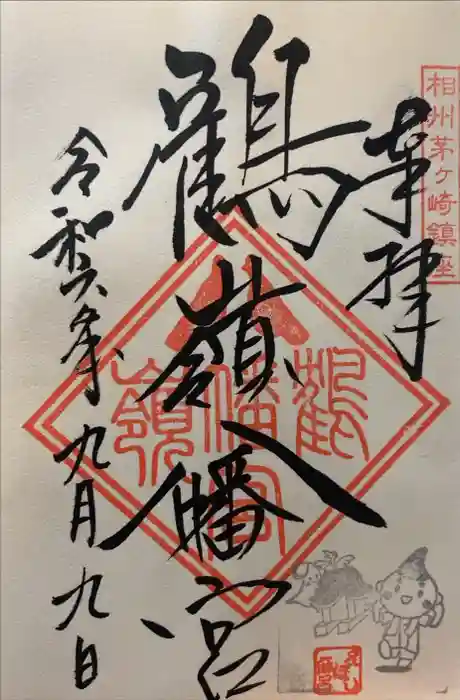 相州茅ヶ崎鎮座
奉拝
鶴嶺八幡宮
鶴嶺八幡宮
令和六年九月九日